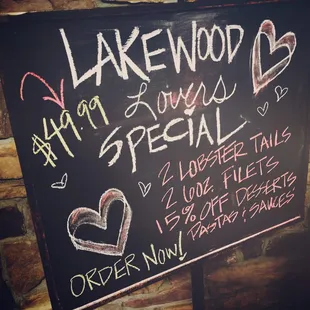 LAKEWOOD
Lovers
SPECIAL
$49.99
2 LOBSTER TAILS
2 6oz. FILETS
15% OFF DESSERTS
PASTAS & SAUCES
ORDER NOW!